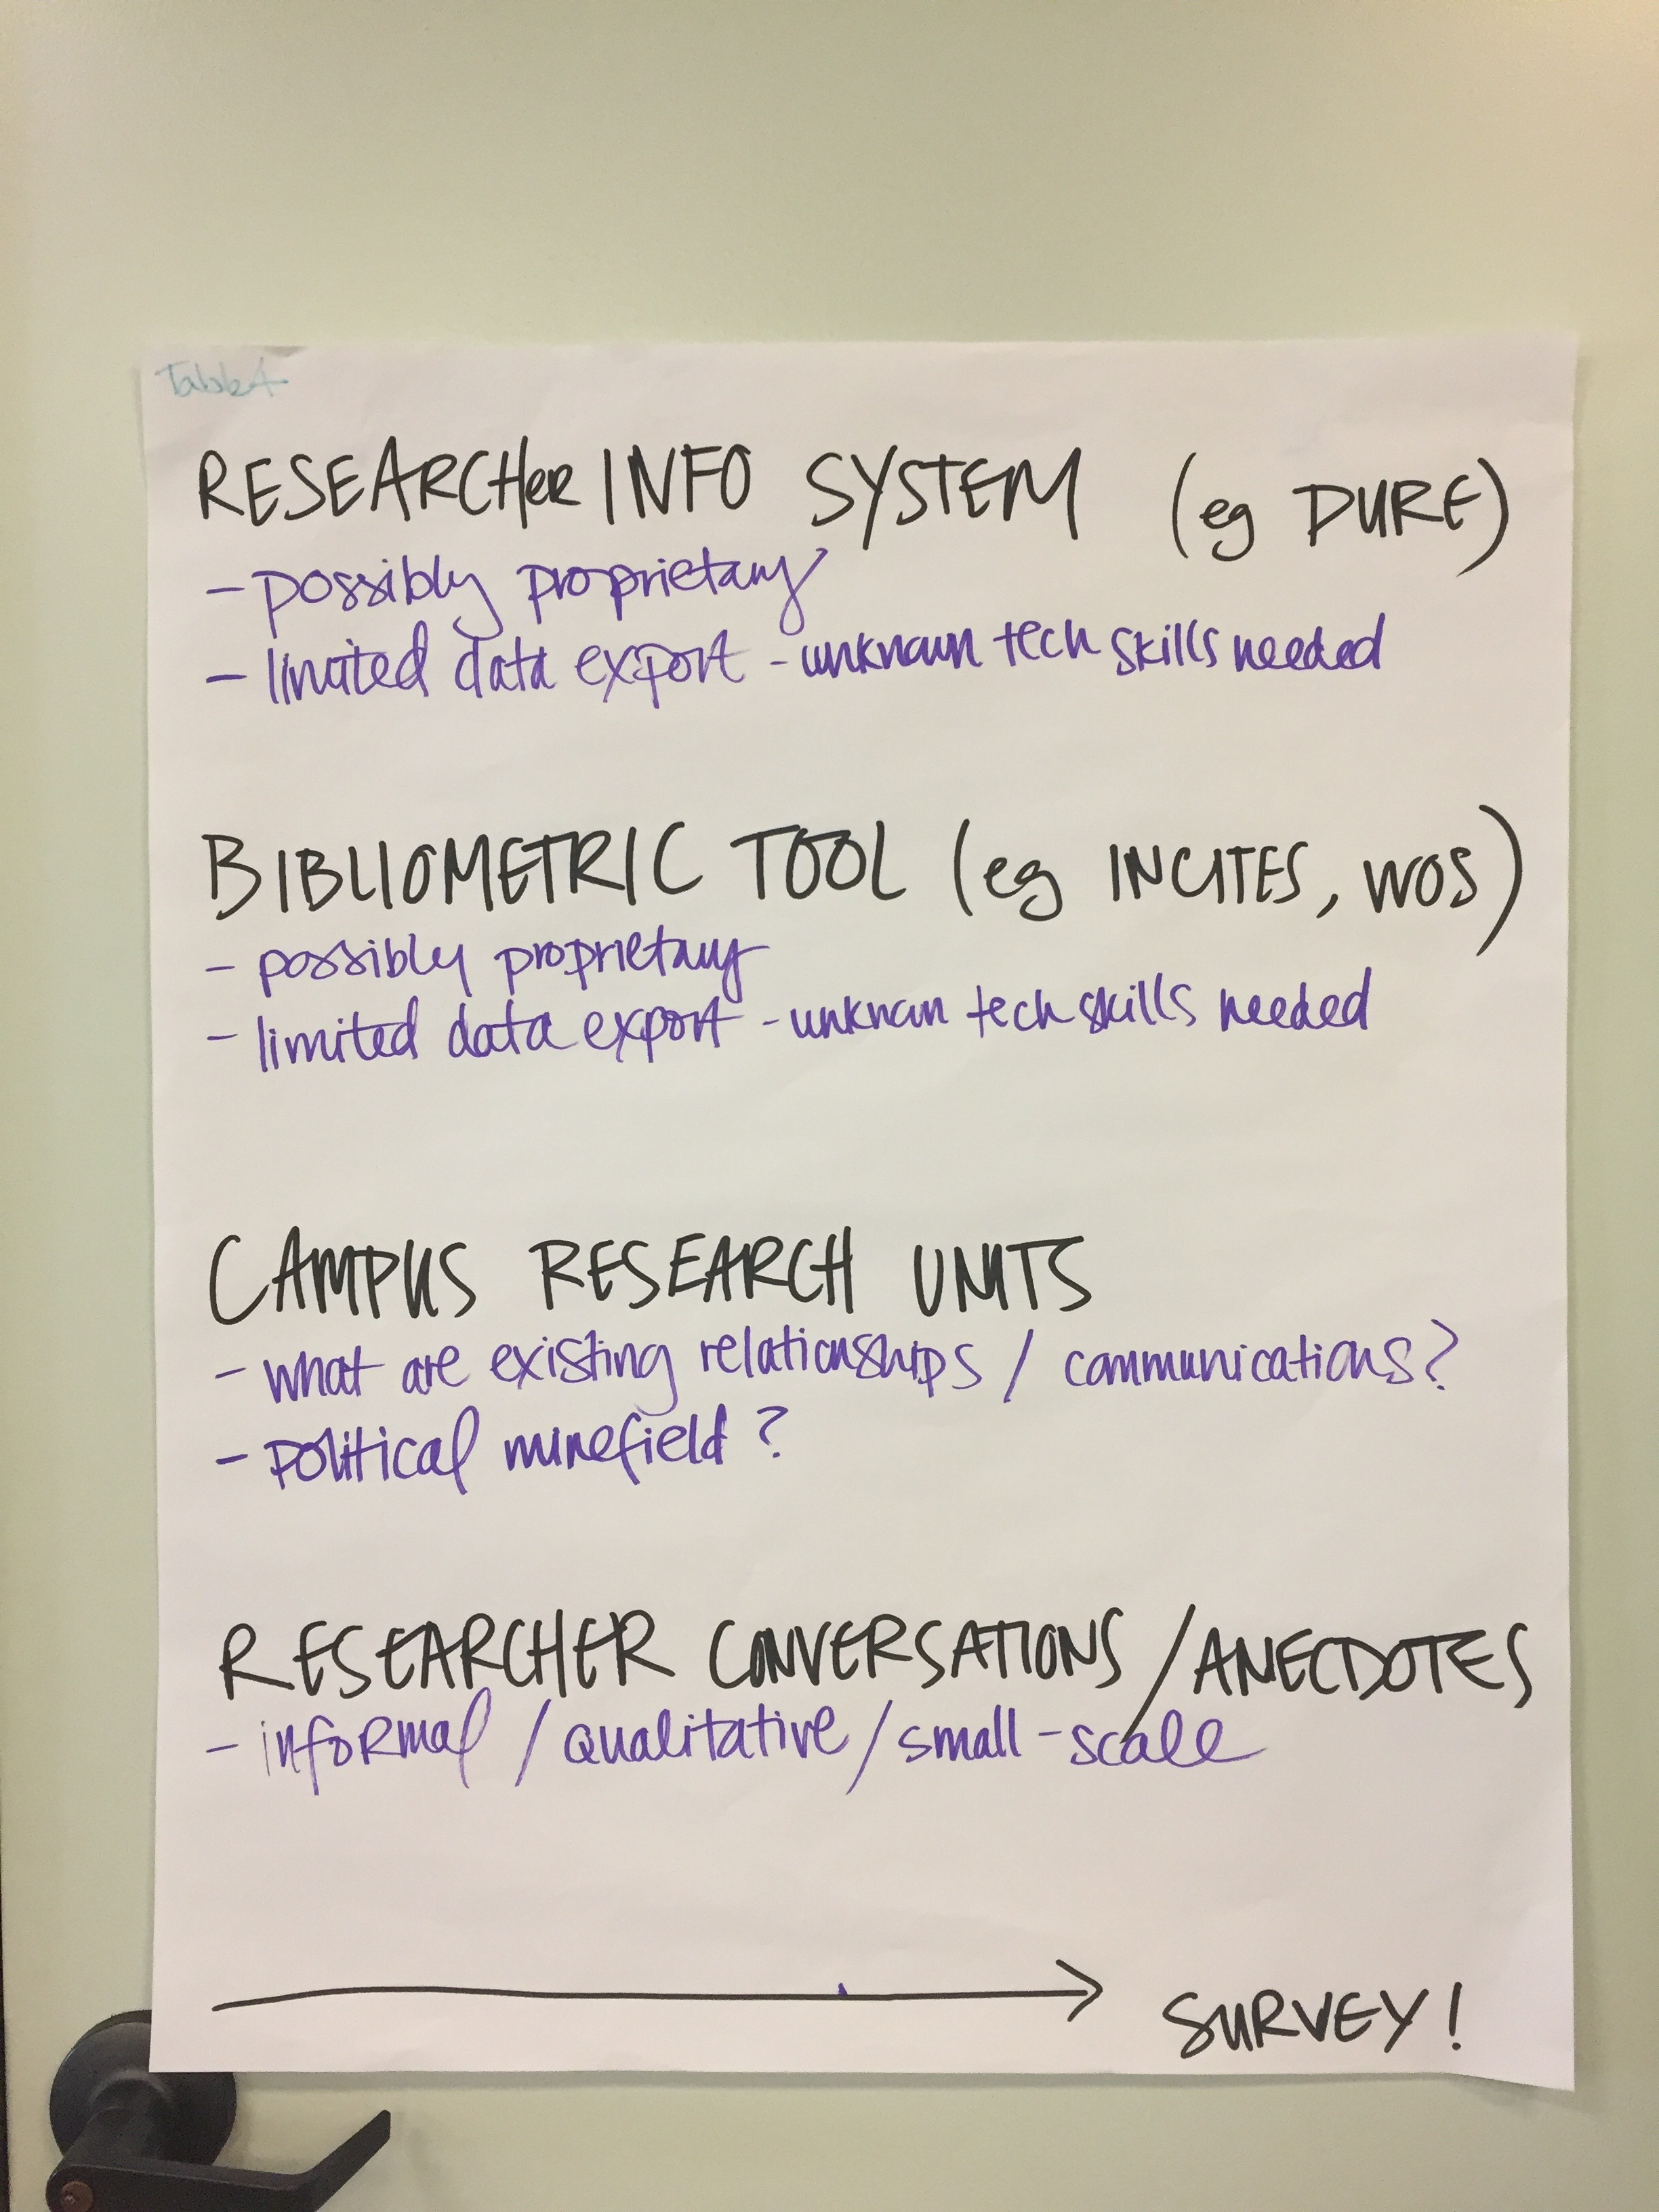 Table 4
RESEARCHER INFO SYSTEM (eg PURE)
- possibly proprietary
- limited data export - unknown tech skills needed
BIBLIOMETRIC TOOL (eg INCITES, WOS)
- possibly proprietary
- limited data export - unknown tech skills needed
CAMPUS RESEARCH UNITS
- what are existing relationships / communications?
- political minefield?
RESEARCHER CONVERSATIONS / ANECDOTES
- informal / qualitative / small-scale
→ SURVEY!